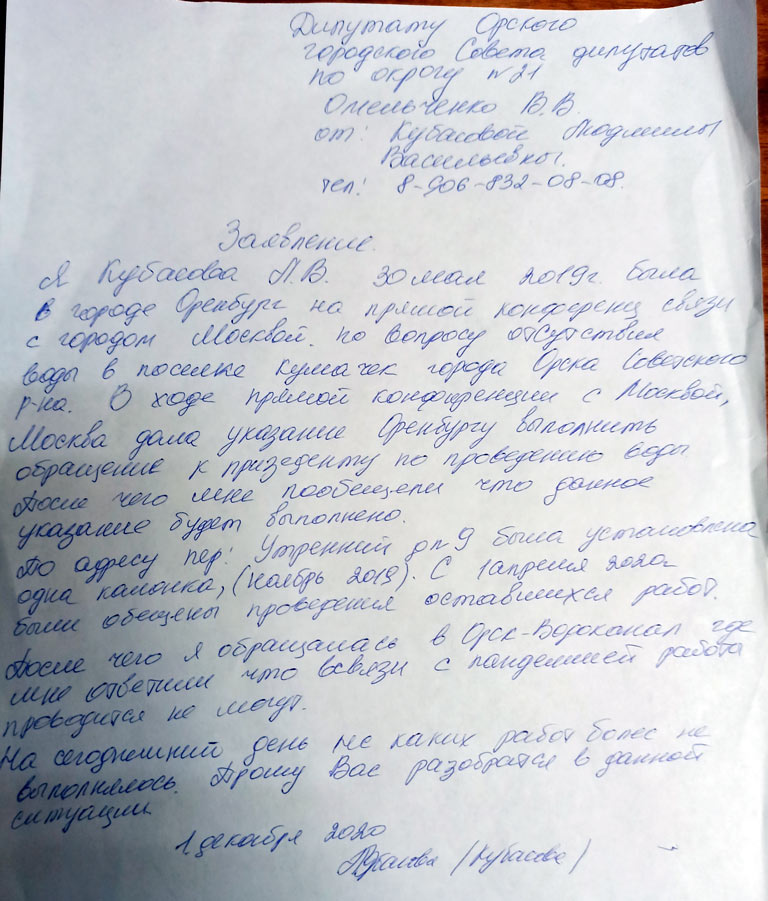 Дипутату Орского
городского Совета дипутатов
по округу №21
Омельченко В.В.
от: Кубасовой Людмилы
Васильевны.
тел: 8-906-832-08-08.
Заявление.
Я Кубасова Л.В. 30 мая 2019г. была
в городе Оренбург на прямой конференц связи
с городом Москвой. по вопросу отсутствия
воды в поселке Кумачек города Орска Советского
р-на. В ходе прямой конференции с Москвой,
Москва дала указание Оренбургу выполнить
обращение к призеденту по проведению воды
После чего мне пообещели что данное
указание будет выполнено.
По адресу пер: Утренний 9 была установлена
одна калонка, (ноябрь 2019). С 1 апреля 2020г
были обещены проведения оставшихся работ.
После чего я обращалась в Орск-Вороканал где
мне ответили что всвязи с пандемией работа
проводится не могут.
На сегоднишний день не каких работ более не
выполнялось. Прошу Вас разобратся в данной
ситуации
1 декабря 2020
(Кубасова)